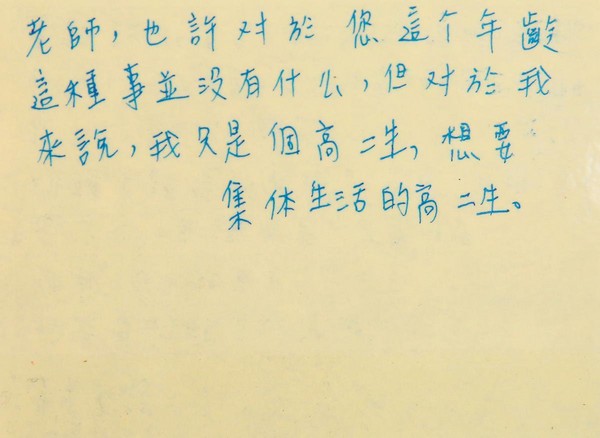 老師，也許对於您這个年齡
這種事並没有什么，但对於我
來說，我只是個高二生，想要
集体生活的高二生。